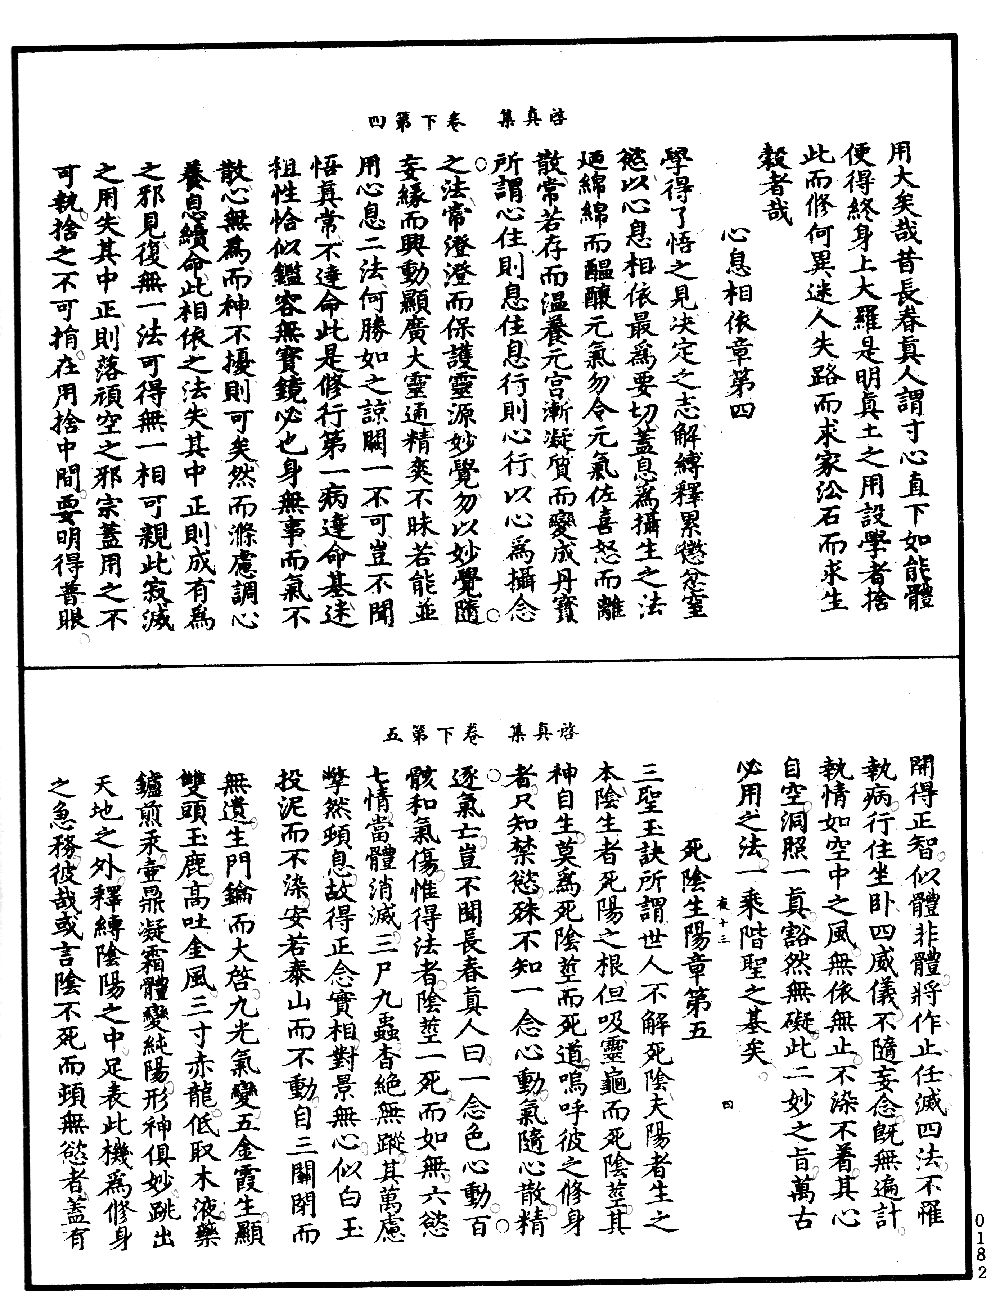 啓真集　卷下第四
用大矣哉昔長春真人謂寸心直下如能體
便得終身上大羅是明真土之用設學者捨
此而修何異迷人失路而求家沁石而求生
穀者哉
心息相依章第四
學得了悟之見决定之志解縛釋累懲忿窒
慾以心息相依最為要切蓋息為攝生之法
廼綿綿而醞釀元氣勿令元氣佐喜怒而離
散常若存而溫養元宮漸凝質而變成丹寶
所謂心住則息住息行則心行以心為攝念
之法常澄澄而保護靈源妙覺勿以妙覺隨
妄緣而興動顯廣大靈通精爽不昧若能並
用心息二法何勝如之諒闕一不可豈不聞
悟真常不達命此是修行第一病達命基迷
祖性恰似鑑容無寶鏡必也身無事而氣不
散心無為而神不擾則可矣然而滌慮調心
養息續命此相依之法失其中正則成有為
之邪見復無一法可得無一相可親此寂滅
之用失其中正則落頑空之邪宗蓋用之不
可執捨之不可捐在用捨中間要明得普眼
啓真集　卷下第五
開得正智似體非體將作止任滅四法不罹
執病行住坐卧四威儀不隨妄念旣無遍計
執情如空中之風無依無止不染不着其心
自空洞照一真豁然無礙此二妙之旨萬古
必用之法一乘階聖之基矣
夜十三　四
死陰生陽章第五
三聖玉訣所謂世人不解死陰夫陽者生之
本陰生者死陽之根但吸靈龜而死陰莖其
神自生莫為死陰莖而死道嗚呼彼之修身
者只知禁慾殊不知一念心動氣隨心散精
逐氣亡豈不聞長春真人曰一念色心動百
骸和氣傷惟得法者陰莖一死而如無六慾
七情當體消滅三尸九蟲杳絕無蹤其萬慮
弊然頓息故得正念實相對景無心似白玉
投泥而不染安若泰山而不動自三關閉而
無遺生門鑰而大啓九光氣變五金霞生顯
雙頭玉鹿高吐金風三寸赤龍低取木液藥
鑪煎汞壷鼎凝霜體變純陽形神俱妙跳出
天地之外釋縛陰陽之中足表此機為修身
之急務彼哉或言陰不死而頓無慾者蓋有
0182